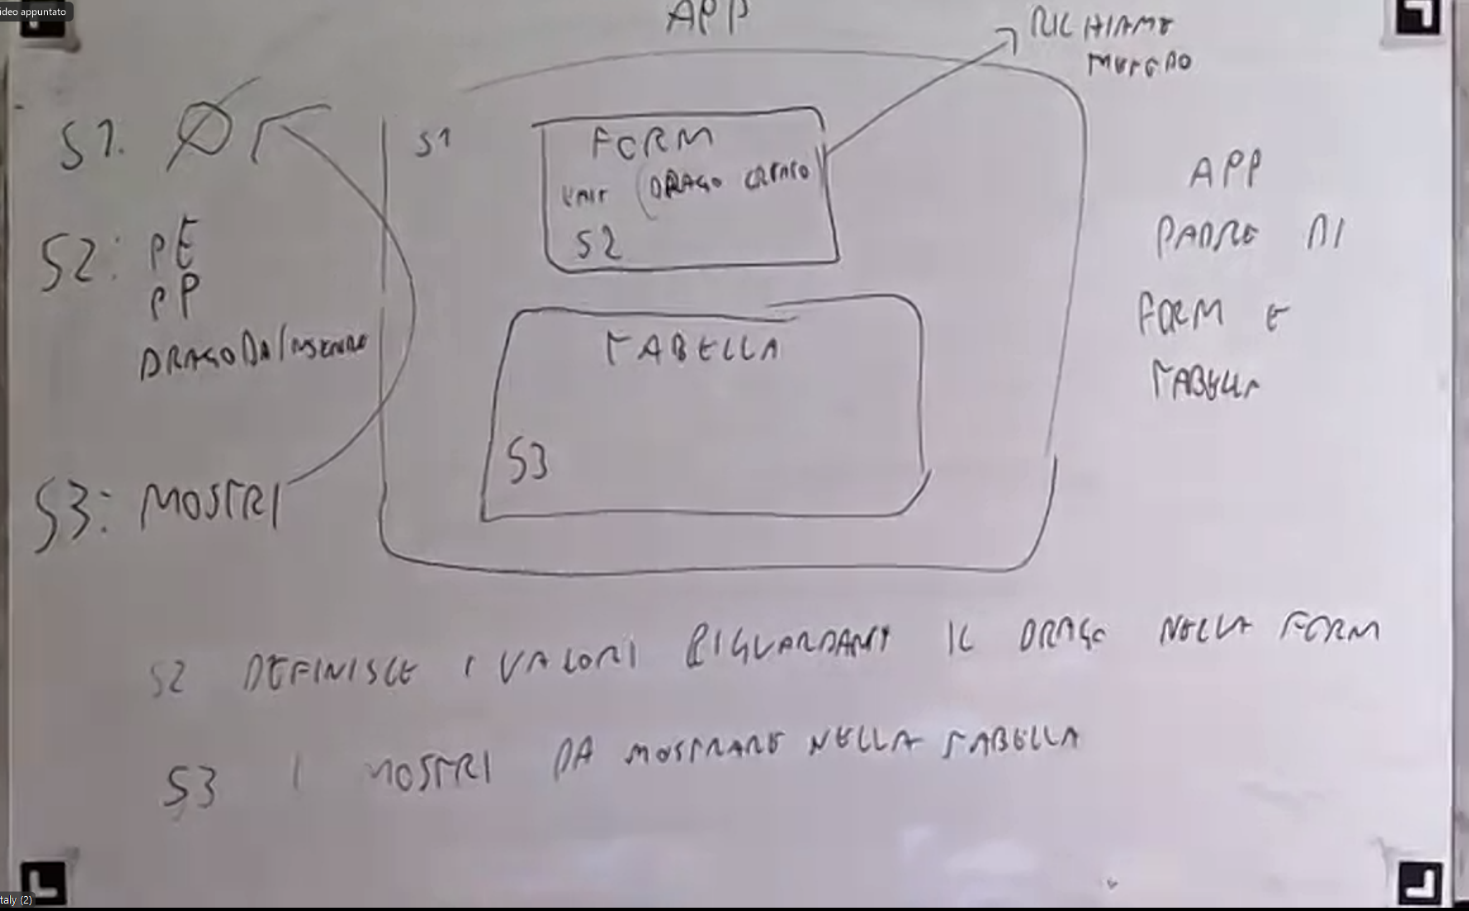 ideo appuntato
APP
RICHIAMO
METODO
S1. Ø
S2: PE
PP
DRAGODAINSERIRE
S3: MOSTRI
S1
FORM
(DRAGO CREATO)
S2
TABELLA
S3
APP
PADRE DI
FORM E
TABELLA
S2 DEFINISCE I VALORI RIGUARDANTI IL DRAGO NELLA FORM
S3 I MOSTRI DA MOSTRARE NELLA TABELLA
taly (2)